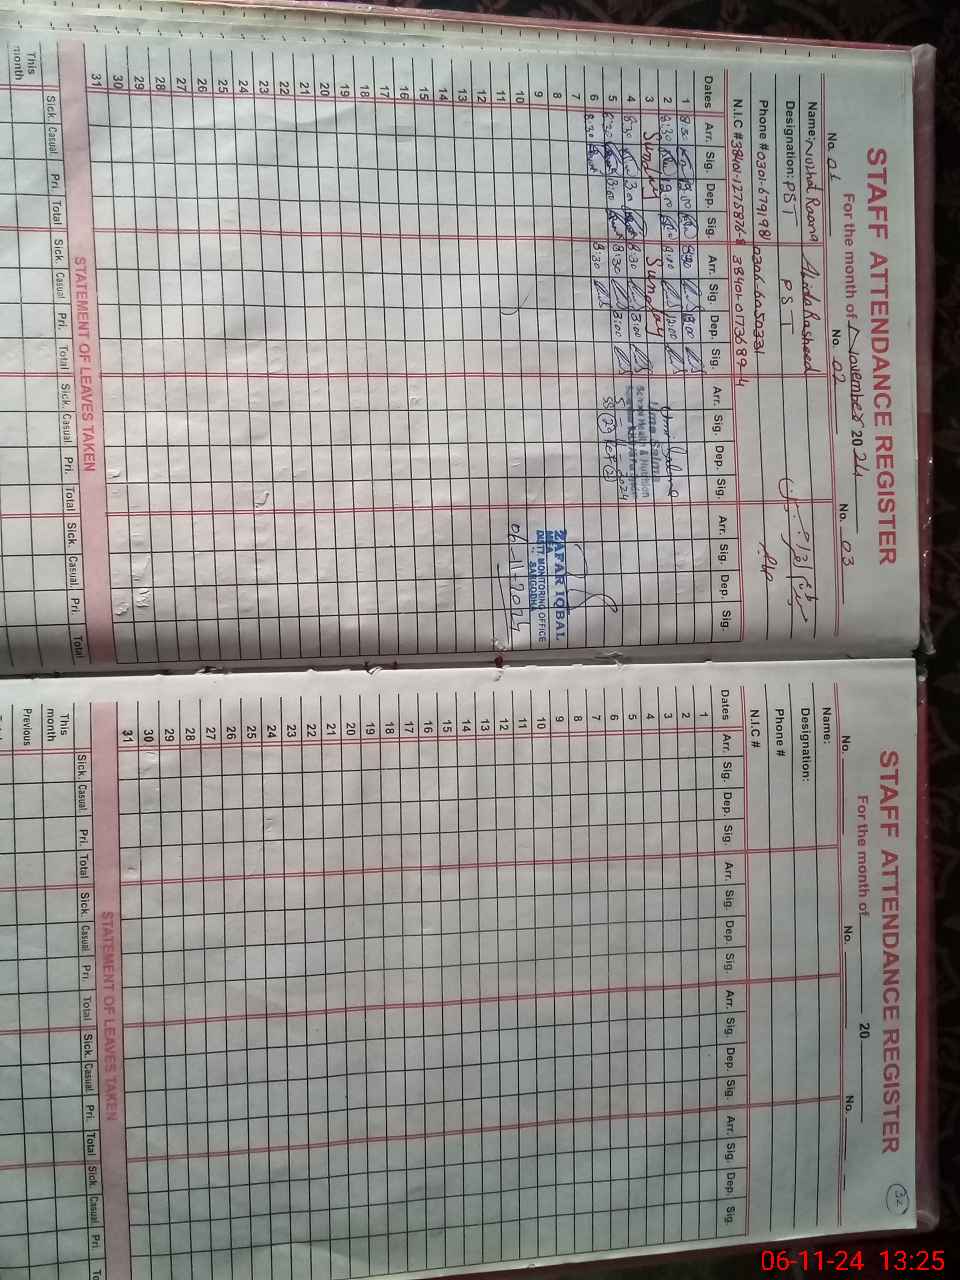 STAFF ATTENDANCE REGISTER
For the month of November 2024
No. 01 No. 02 No. 03
Name: Nuzhat Raana Abida Rasheed
Designation: PST PST
Phone # 0301-6791981 0306-6050331
N.I.C # 38401-1275876-8 38401-0173689-4
Dates Arr. Sig. Dep. Sig. Arr. Sig. Dep. Sig. Arr. Sig. Dep. Sig. Arr. Sig. Dep. Sig.
1 8:30 13:00 8:30 13:00
2 8:30 12:00 8:30 12:00
3 Sunday Sunday
4 8:30 13:00 8:30 13:00
5 8:30 13:00 8:30 13:00
6 8:30 8:30
7
8
9
10
11
12
13
14
15
16
17
18
19
20
21
22
23
24
25
26
27
28
29
30
31
Uma Salma
School Health & Nutrition
5-11-2024
ZAFAR IQBAL
MEA
DISTT MONITORING OFFICE
SARGODHA
06-11-2024
STATEMENT OF LEAVES TAKEN
Sick. Casual Pri. Total Sick. Casual Pri. Total Sick. Casual Pri. Total Sick. Casual. Pri. Total
This month
32
STAFF ATTENDANCE REGISTER
For the month of 20
No. No. No.
Name:
Designation:
Phone #
N.I.C #
Dates Arr. Sig. Dep. Sig. Arr. Sig. Dep. Sig. Arr. Sig. Dep. Sig. Arr. Sig. Dep. Sig.
1
2
3
4
5
6
7
8
9
10
11
12
13
14
15
16
17
18
19
20
21
22
23
24
25
26
27
28
29
30
31
STATEMENT OF LEAVES TAKEN
Sick. Casual Pri. Total Sick. Casual Pri. Total Sick. Casual Pri. Total Sick. Casual Pri.
This month
Previous
06-11-24 13:25